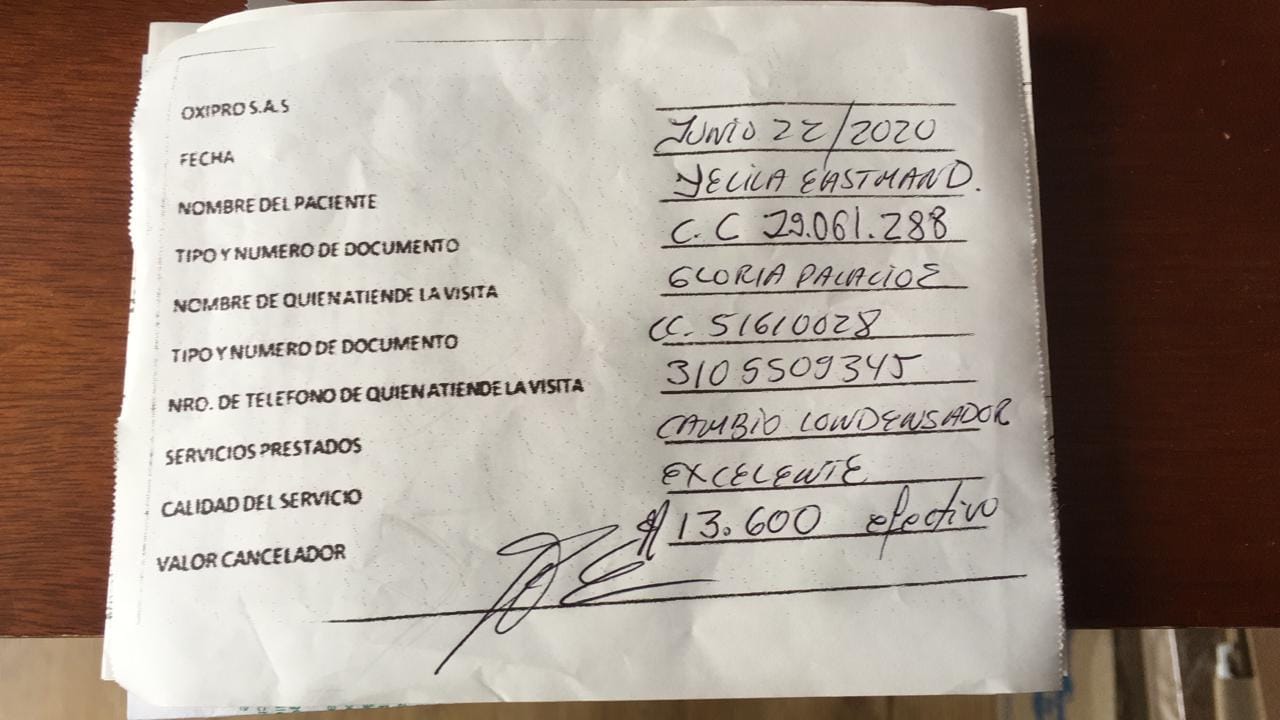 OXIPRO S.A.S
FECHA JUNIO 22/2020
NOMBRE DEL PACIENTE YELILA EASTMAND.
TIPO Y NUMERO DE DOCUMENTO C.C 29.061.288
NOMBRE DE QUIEN ATIENDE LA VISITA GLORIA PALACIOS
TIPO Y NUMERO DE DOCUMENTO CC. 51610028
NRO. DE TELEFONO DE QUIEN ATIENDE LA VISITA 3105509345
SERVICIOS PRESTADOS CAMBIO CONDENSADOR
CALIDAD DEL SERVICIO EXCELENTE
VALOR CANCELADOR $ 13.600 efectivo